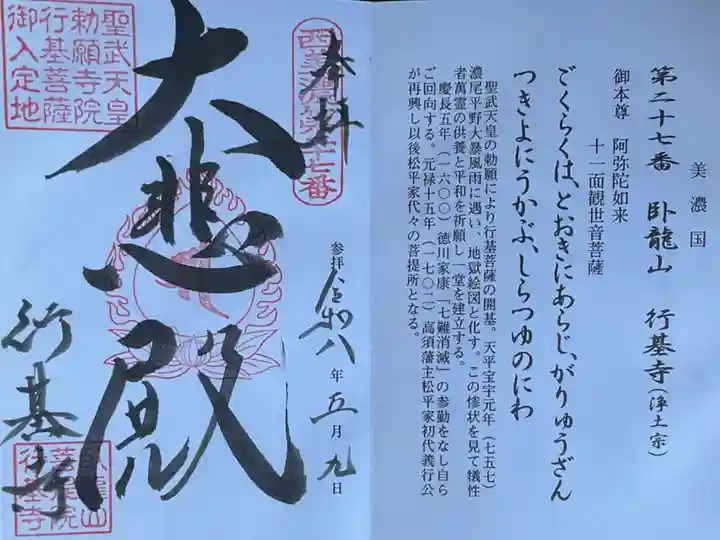 美濃国
第二十七番 臥龍山 行基寺(浄土宗)
御本尊 阿弥陀如来
十一面観世音菩薩
ごくらくは、とおきにあらじ、がりゅうざん
つきよにうかぶ、しらつゆのにわ
聖武天皇の勅願により行基菩薩の開基。天平宝宇元年(七五七)
濃尾平野大暴風雨に遇い、地獄絵図と化す。この惨状を見て犠牲
者萬霊の供養と平和を祈願し一堂を建立する。
慶長五年(一六〇〇)徳川家康「七難消滅」の参勤をなし自ら
ご回向する。元禄十五年(一七〇二)高須藩主松平家初代義行公
が再興し以後松平家代々の菩提所となる。
奉拝
西美濃 第二十七番
参拝 令和八年五月九日
大悲殿
聖武天皇
勅願寺院
行基菩薩
御入定地
行基寺
臥龍山
菩提院
行基寺